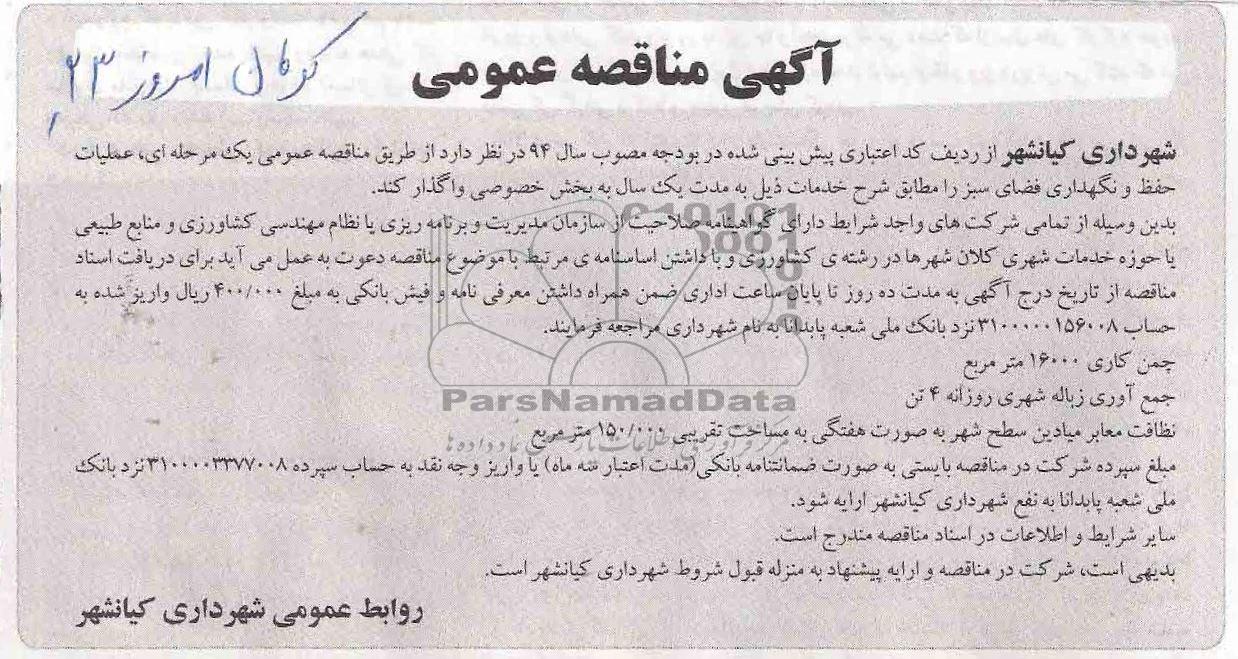 کرمان امروز ۲۳
آگهی مناقصه عمومی
شهرداری کیانشهر از ردیف کد اعتباری پیش بینی شده در بودجه مصوب سال ۹۴ در نظر دارد از طریق مناقصه عمومی یک مرحله ای، عملیات
حفظ و نگهداری فضای سبز را مطابق شرح خدمات ذیل به مدت یک سال به بخش خصوصی واگذار کند.
بدین وسیله از تمامی شرکت های واجد شرایط دارای گواهینامه صلاحیت از سازمان مدیریت و برنامه ریزی یا نظام مهندسی کشاورزی و منابع طبیعی
یا حوزه خدمات شهری کلان شهرها در رشته ی کشاورزی و با داشتن اساسنامه ی مرتبط با موضوع مناقصه دعوت به عمل می آید برای دریافت اسناد
مناقصه از تاریخ درج آگهی به مدت ده روز تا پایان ساعت اداری ضمن همراه داشتن معرفی نامه و فیش بانکی به مبلغ ۴۰۰/۰۰۰ ریال واریز شده به
حساب ۳۱۰۰۰۰۰۱۵۶۰۰۸ نزد بانک ملی شعبه پابدانا به نام شهرداری مراجعه فرمایند.
چمن کاری ۱۶۰۰۰ متر مربع
جمع آوری زباله شهری روزانه ۴ تن
ParsNamadData
نظافت معابر میادین سطح شهر به صورت هفتگی به مساحت تقریبی ۱۵۰/۰۰۰ متر مربع
مبلغ سپرده شرکت در مناقصه بایستی به صورت ضمانتنامه بانکی(مدت اعتبار سه ماه) یا واریز وجه نقد به حساب سپرده ۳۱۰۰۰۰۳۳۷۷۰۰۸ نزد بانک
ملی شعبه پابدانا به نفع شهرداری کیانشهر ارایه شود.
سایر شرایط و اطلاعات در اسناد مناقصه مندرج است.
بدیهی است، شرکت در مناقصه و ارایه پیشنهاد به منزله قبول شروط شهرداری کیانشهر است.
روابط عمومی شهرداری کیانشهر